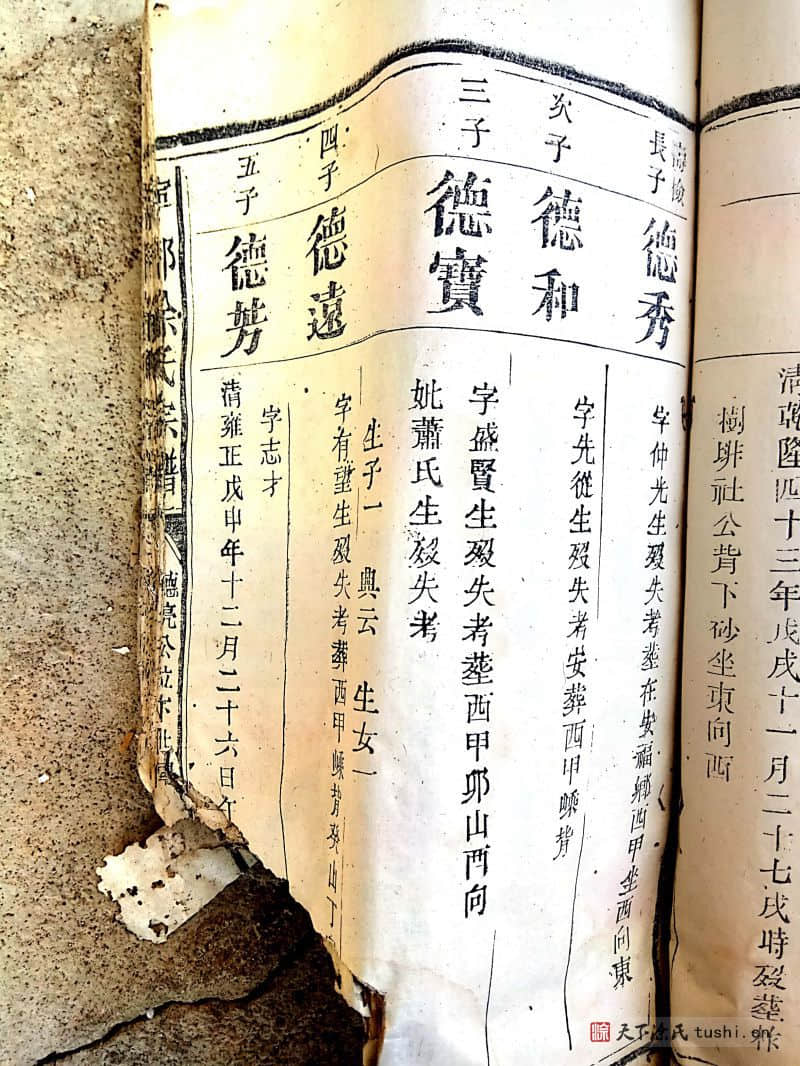 清乾隆四十三年戊戌十一月二十七戌時歿塟
樹排社公背下砂坐東向西
長子
德秀
字仲光生歿失考塟在安福鄉西甲坐西向東
次子
德和
字先從生歿失考安葬西甲嵊背
三子
德寶
字盛賢生歿失考塟西甲卯山酉向
妣蕭氏生歿失考
生子一 典云 生女一
四子
德遠
字有望生歿失考葬西甲嵊背癸山丁
五子
德芳
字志才
清雍正戊申年十二月二十六日午
氏宗譜
德亮公位下
天下涂氏 tushi.cn